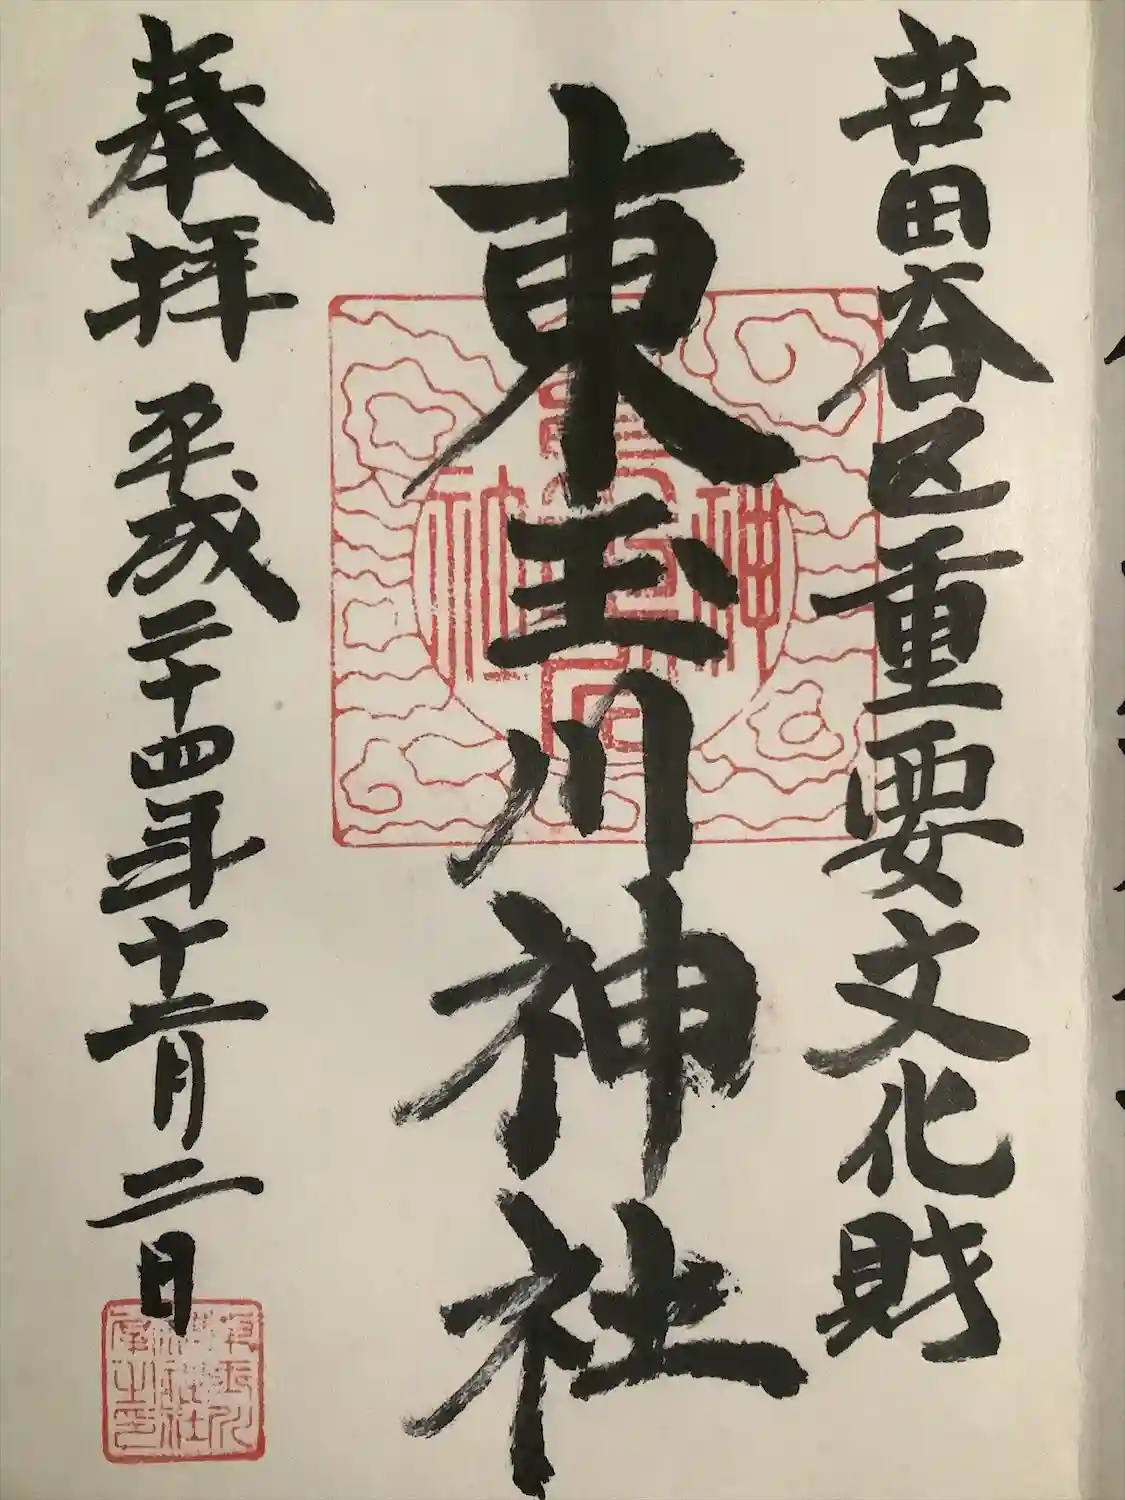 世田谷区重要文化財
東玉川神社
奉拝 平成二十四年十二月二日